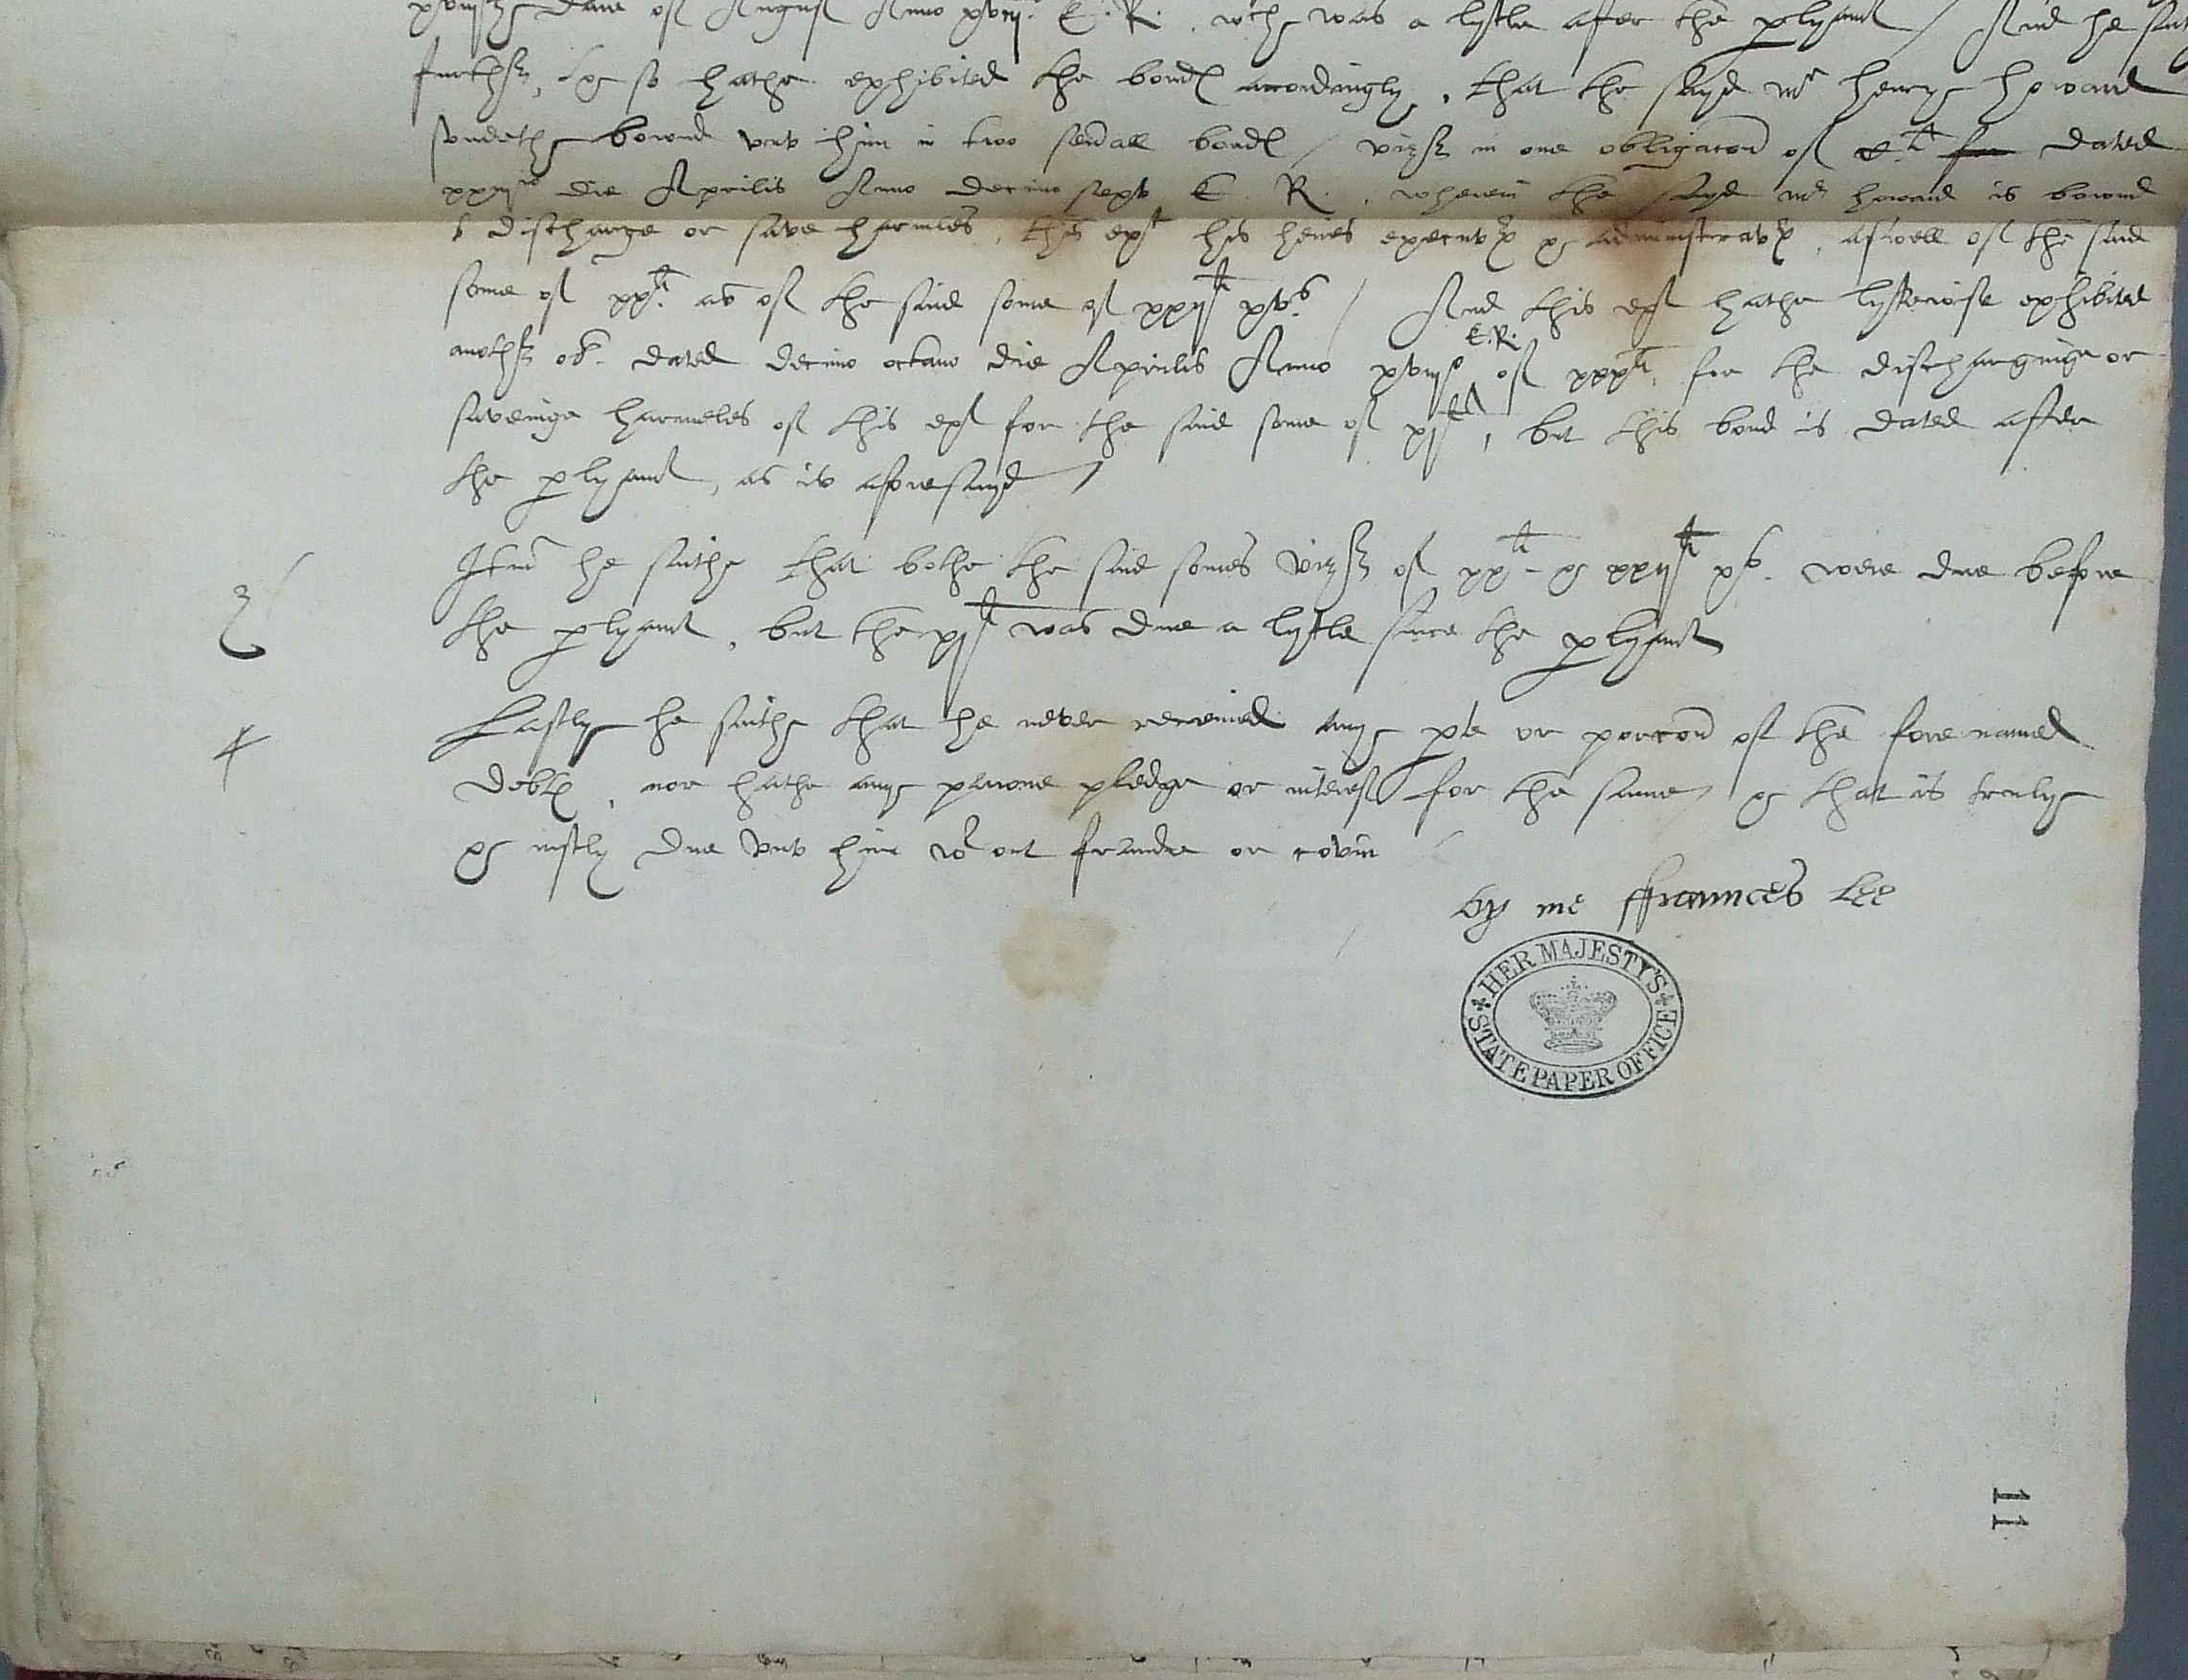 daie of August Anno xviij.º E. R. wch was a lytle after the plyamt / And he
further, & so hathe exhibited the bond accordingly, that the sayd mr henry howard
standeth bownd unto him in two severall bond / viz in one obligacon of dated
die Aprilis Anno decimo septo E. R. wherein the sayd mr howard is bownd
to discharge or save harmles, this ext his heires executor & administrator, aswell of the said
some of xxli. as of the said some of xxijli xvs. / And this ext hathe lykewise exhibited
another ob. dated decimo octavo die Aprilis Anno xviijº E. R. of xxxli. for the discharginge or
saveinge harmeles of this ext for the said some of xjli, but this bond is dated after
the plyamt, as is aforesayd /
3 Itm he saith that bothe the said somes viz of xxli & xxijli xvs. were due before
the plyamt, but the xjli was due a lytle since the plyamt
4 Lastly he saith that he never received any pte or porcon of the fore named
debt, nor hathe any pawne pledge or interest for the same, & that is truly
& iustly due unto him wt out fraude or covin
by me ffraunces Lee
HER MAJESTY'S
STATE PAPER OFFICE
11